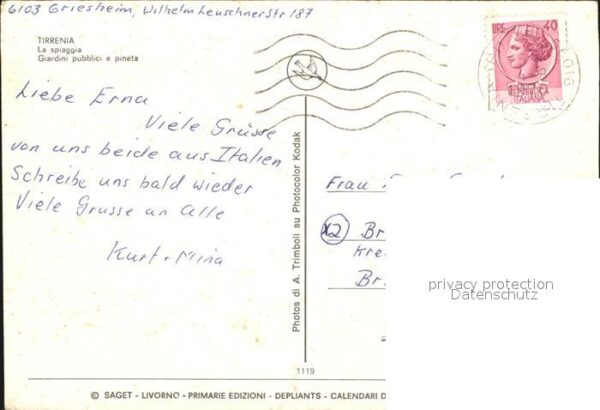 6103 Griesheim, Wilhelmleuschnerstr 187
TIRRENIA
La spiaggia
Giardini pubblici e pineta
LIRE 40
REPUBBLICA
ITALIANA
Liebe Erna
Viele Grüsse
von uns beide aus Italien
Schreibe uns bald wieder
Viele Grusse an Alle
Kurt + Mina
Photos di A. Trimboli su Photocolor Kodak
Frau
X2 Br
Kre
Br
privacy protection
Datenschutz
1119
© SAGET - LIVORNO - PRIMARIE EDIZIONI - DEPLIANTS - CALENDARI D